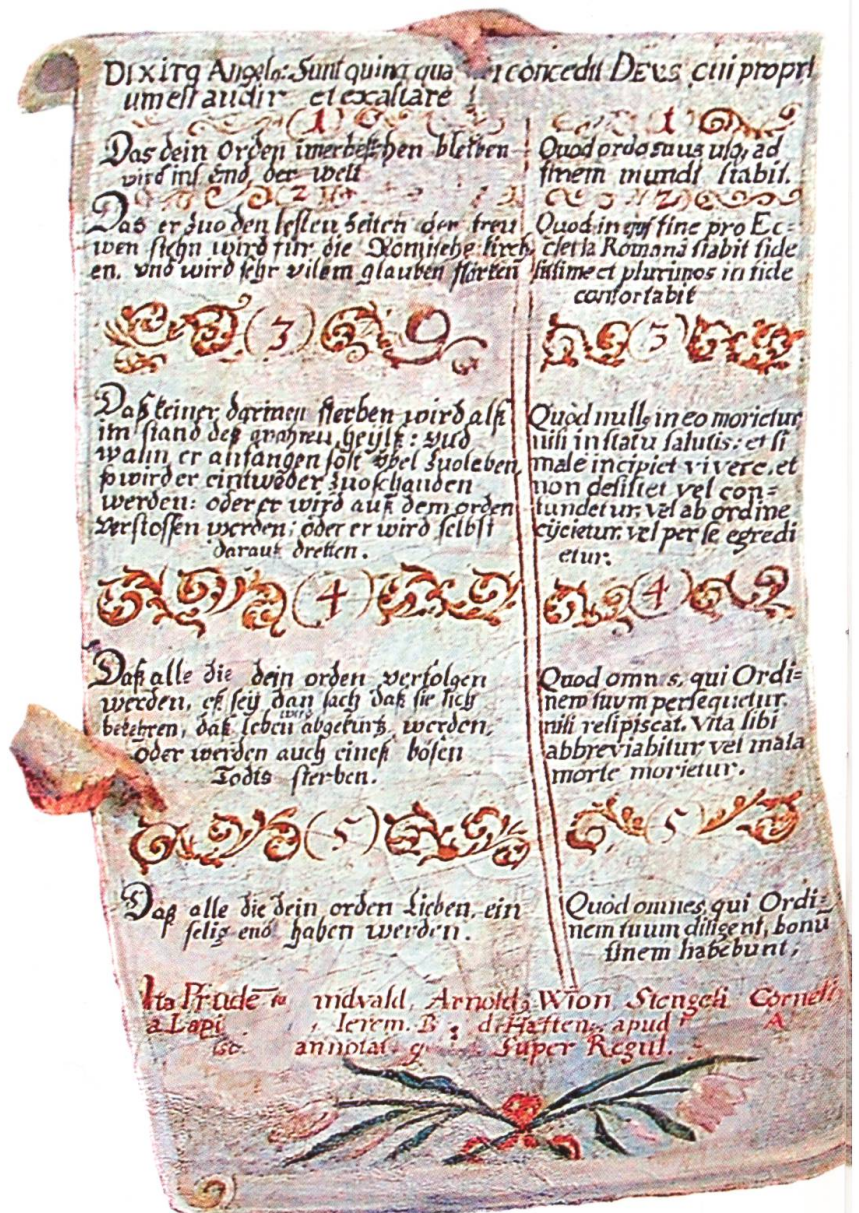 DIXITQ Angelq: Sunt quinq qua concedit DEVS, cui propri
um est audir et exaltare
(1)
Das dein Orden imerbestehen bleiben
wird ins End der welt
(2)
Das er zuo den lesten Zeiten der treu
wen stehn wird für die Römische kirch
en. vnd wird sehr vilem glauben stärken
(3)
Daß keiner darinen sterben wird alß
im stand deß heylß: vnd
wann er anfangen solt übel zuoleben
so wird er eintwöder zuoschanden
werden: oder er wird auß dem orden
verstossen werden; öder er wird selbst
darauß dretten.
(4)
Daß alle die dein orden verfolgen
werden, eß seÿ dan sach daß sie sich
bekehren, daß leben wird abgekurtz werden,
öder werden auch eineß bösen
Todts sterben.
(5)
Daß alle die dein orden Lieben, ein
selig end haben werden.
1
Quod ordo suus usq, ad
finem mundi stabit.
(2)
Quod in fine pro Ec=
clesia Romana stabit fide
lissime et plurimos in fide
confortabit
(3)
Quòd nullq in eo morietur
nisi in statu salutis: et si
male incipiet vivere, et
non desistet vel con=
fundetur, vel ab ordine
eijcietur, vel per se egredi
etur.
(4)
Quod omnis, qui Ordi=
nem suum persequetur.
nisi resipiscat. Vita sibi
abbreviabitur vel mala
morte morietur.
(5)
Quòd omnes, qui Ordi=
nem tuum diligent, bonū
finem habebunt,
Ita Prudē indvald, Arnoldq Wion Stengeli Corneli,
a Lapi Ierem. B d. Haften, apud A
annotat Super Regul.